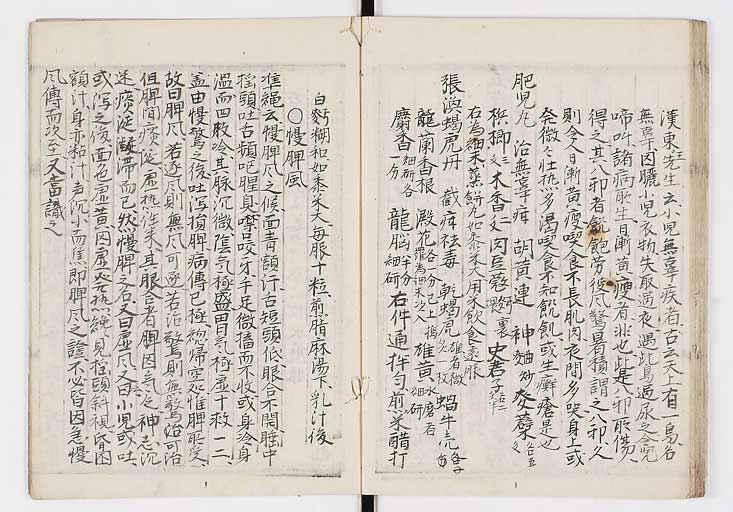 漢東王先生云小児無辜疾者古云天上有一鳥名
無辜因曬小児衣物失取過夜遇此鳥過尿之令児
啼叫諸病所生日漸黄瘦者非也此是八邪所傷
得之其八邪者飢飽労役風驚暑積謂之八邪久
則令人日漸黄瘦喫食不長肌肉夜間多哭身上或
発微々壮熱多渇喫食不知飢飽或生癬瘡是也
肥児丸 治無辜疳 胡黄連 神麹炒 麦蘗
梹榔 木香 肉豆蔲 史君子
右為細末薬餅丸如黍米大用米飲食煮服
張渙蝎虎丹 截疳祛毒 乾蝎虎 雄黄 蝸牛壳
龍蘭香根 澱花 
麝香 龍脳 右件通拌匀煎米醋打
白麪糊和如黍米大毎服十粒煎脂麻湯下乳汁後
〇慢脾風
準縄云慢脾風之候面青額汗舌短頭低眼合不開睡中
揺頭吐舌頻嘔腥臭噤口咬牙手足微搐而不收或身冷身
温而四肢冷其脉沉微陰気極盛胃気極虚十救一二
蓋由慢驚之後吐瀉損脾病傳已極惣帰虚処惟脾所受
故曰脾風若逐風則無風可逐若治驚則無驚可治
但脾間痰涎虚熱往来其眼合者脾困気乏神志沉
迷痰涎凝滞而已然慢脾之名又曰虚風又曰小児或吐
或瀉之後面色虚黄因虚発熱纔見揺頭斜視昏困
額汗身亦粘汁声沉小而焦即脾風之證不必皆因急慢
風傳而次至又當識之